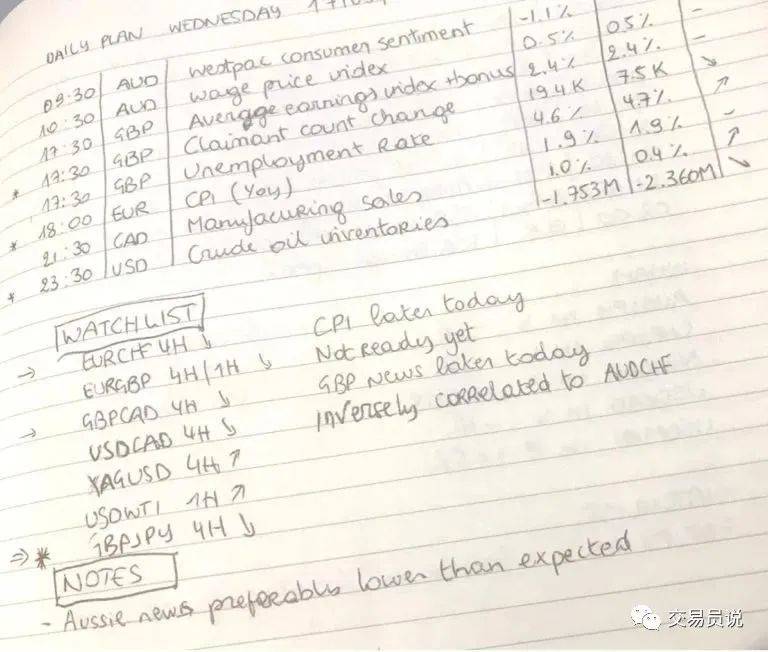 DAILY PLAN WEDNESDAY
09:30 AUD Westpac consumer sentiment -1.1%
10:30 AUD Wage price index 0.5% 0.5% –
17:30 GBP Average earnings index + bonus 2.4% 2.4% –
* 17:30 GBP Claimant count change 19.4K 7.5K ↘
17:30 GBP Unemployment Rate 4.6% 4.7% ↗
* 18:00 EUR CPI (Yoy) 1.9% 1.9% –
21:30 CAD Manufacuring sales 1.0% 0.4% ↗
* 23:30 USD Crude oil inventories -1.753M -2.360M ↘
WATCHLIST
→ EURCHF 4H ↘ CPI later today
EURGBP 4H/1H ↘ Not Ready yet
→ GBPCAD 4H ↘ GBP News later today
USDCAD 4H ↘ Inversely correlated to AUDCHF
XAGUSD 4H ↗
USDWTI 1H ↗
⇒ * GBPJPY 4H ↘
NOTES
- Aussie news preferably lower than expected
交易员说